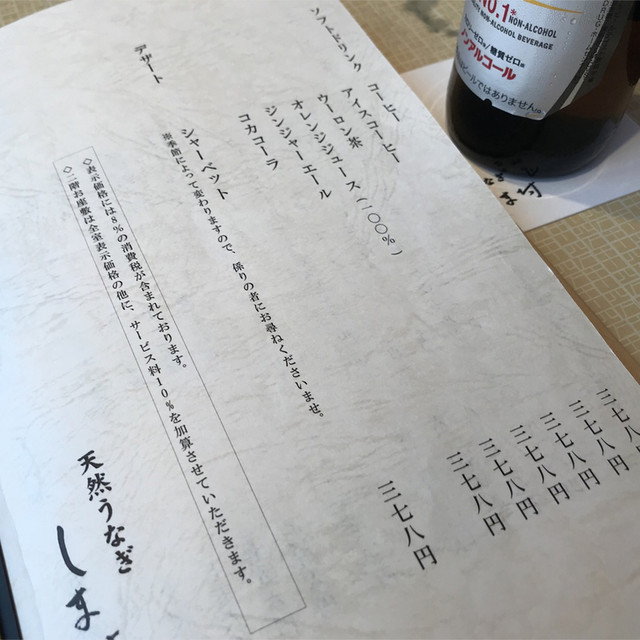 ソフトドリンク
コーヒー 三七八円
アイスコーヒー 三七八円
ウーロン茶 三七八円
オレンジジュース（一〇〇％） 三七八円
ジンジャーエール 三七八円
コカコーラ 三七八円
デザート
シャーベット 三七八円
※季節によって変わりますので、係りの者にお尋ねくださいませ。
◇表示価格には8％の消費税が含まれております。
◇二階お座敷は全室表示価格の他に、サービス料10％を加算させていただきます。
天然うなぎ
しま
NO.1* NON-ALCOHOL
NON-ALCOHOL BEVERAGE
糖質ゼロ※
ノンアルコール
ビールではありません